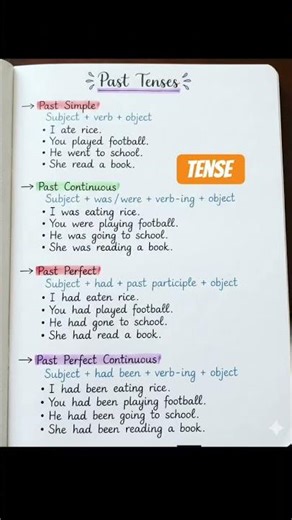 Past Tenses
→ Past Simple
Subject + verb + object
• I ate rice.
• You played football.
• He went to school.
• She read a book.
TENSE
→ Past Continuous
Subject + was/were + verb-ing + object
• I was eating rice.
• You were playing football.
• He was going to school.
• She was reading a book.
→ Past Perfect
Subject + had + past participle + object
• I had eaten rice.
• You had played football.
• He had gone to school.
• She had read a book.
→ Past Perfect Continuous
Subject + had been + verb-ing + object
• I had been eating rice.
• You had been playing football.
• He had been going to school.
• She had been reading a book.